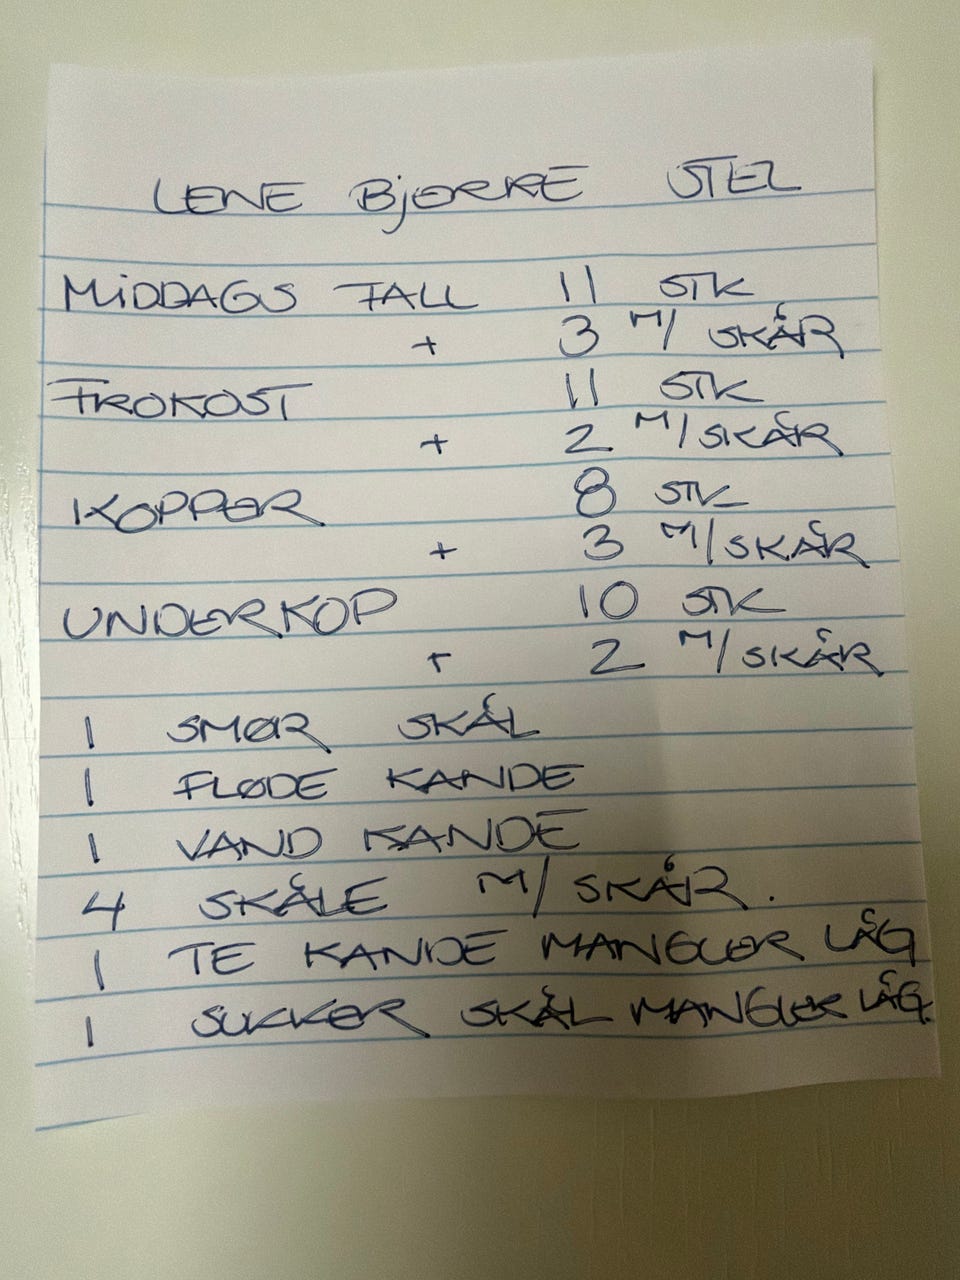 LENE BJERRE STEL
MIDDAGS TALL 11 STK
+ 3 M/ SKÅR
FROKOST 11 STK
+ 2 M/SKÅR
KOPPER 8 STK
+ 3 M/SKÅR
UNDERKOP 10 STK
+ 2 M/SKÅR
1 SMØR SKÅL
1 FLØDE KANDE
1 VAND KANDE
4 SKÅLE M/ SKÅR.
1 TE KANDE MANGLER LÅG
1 SUKKER SKÅL MANGLER LÅG.